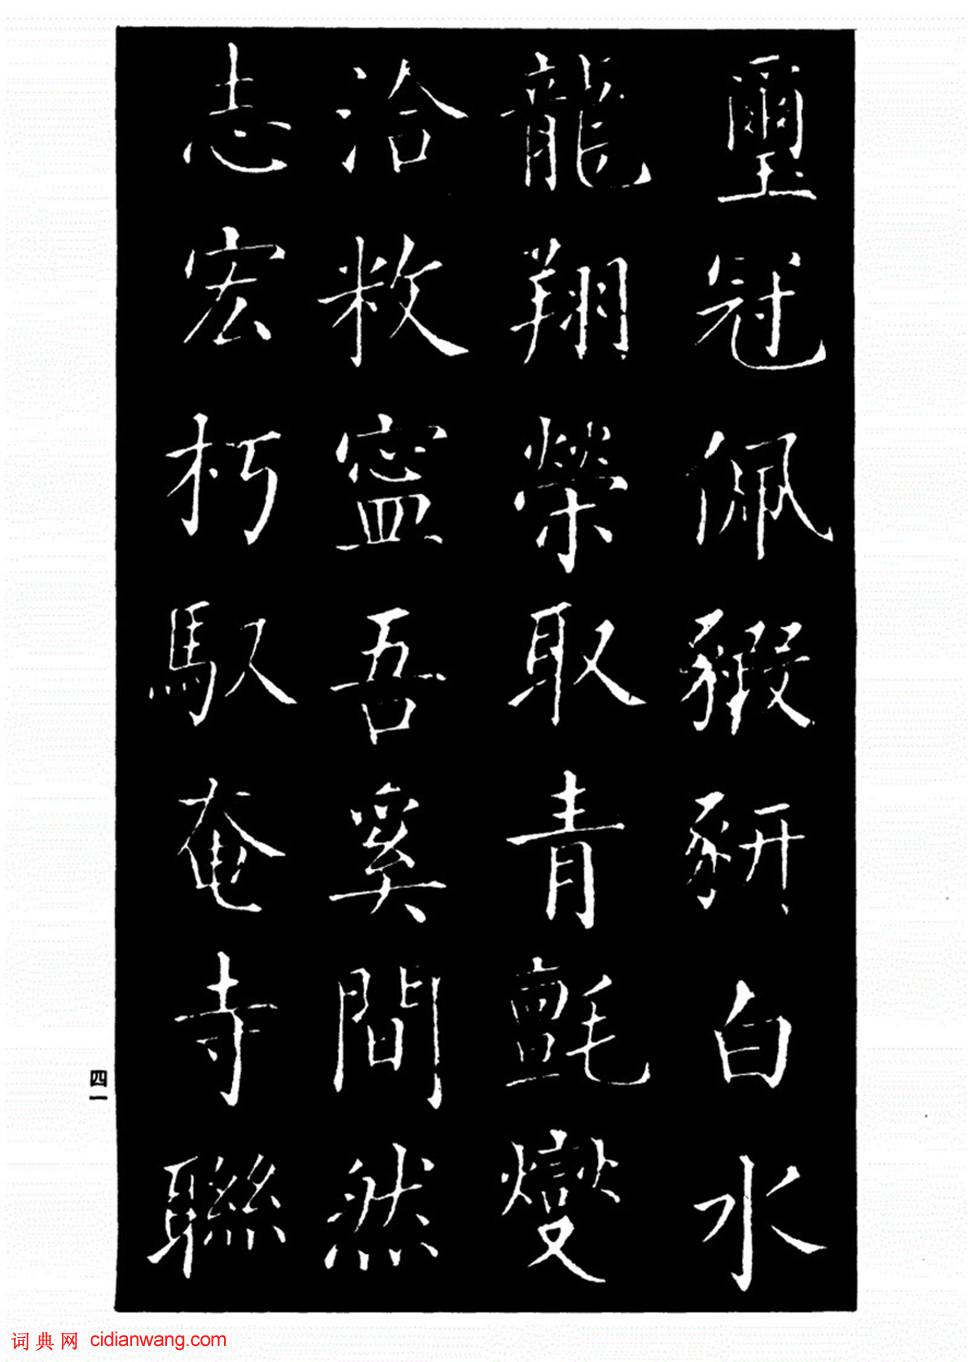 璽冠佩豭豜白水
龍翔榮取青氈燮
洽敉寧吾奚間然
志宏朽馭奄寺聯
四一
词典网 cidianwang.com